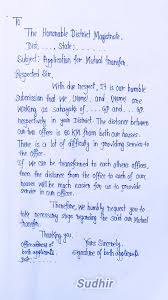 To
The Honorable District Magistrate.
Dist....., State:.......
Subject: Application for Mutual Transfer.
Respected Sir,
With due respect, It is our humble
Submission that We (Name) and (Name) are
working as sahayaks of ..... GP and ..... GP
respectively in your District. The distance between
our two offices is 80 KM from both our houses.
There is a lot of difficulty in providing service to
the office.
If We can be transferred to each others offices,
then the distance from the office to each of our
houses will be much easier for us to provide
service in our offices.
Therefore, We humbly request you to
take necessary steps regarding the said our Mutual
transfer.
Thanking you,
Yours Sincerely.
signature of both applicants
Date
Sudhir